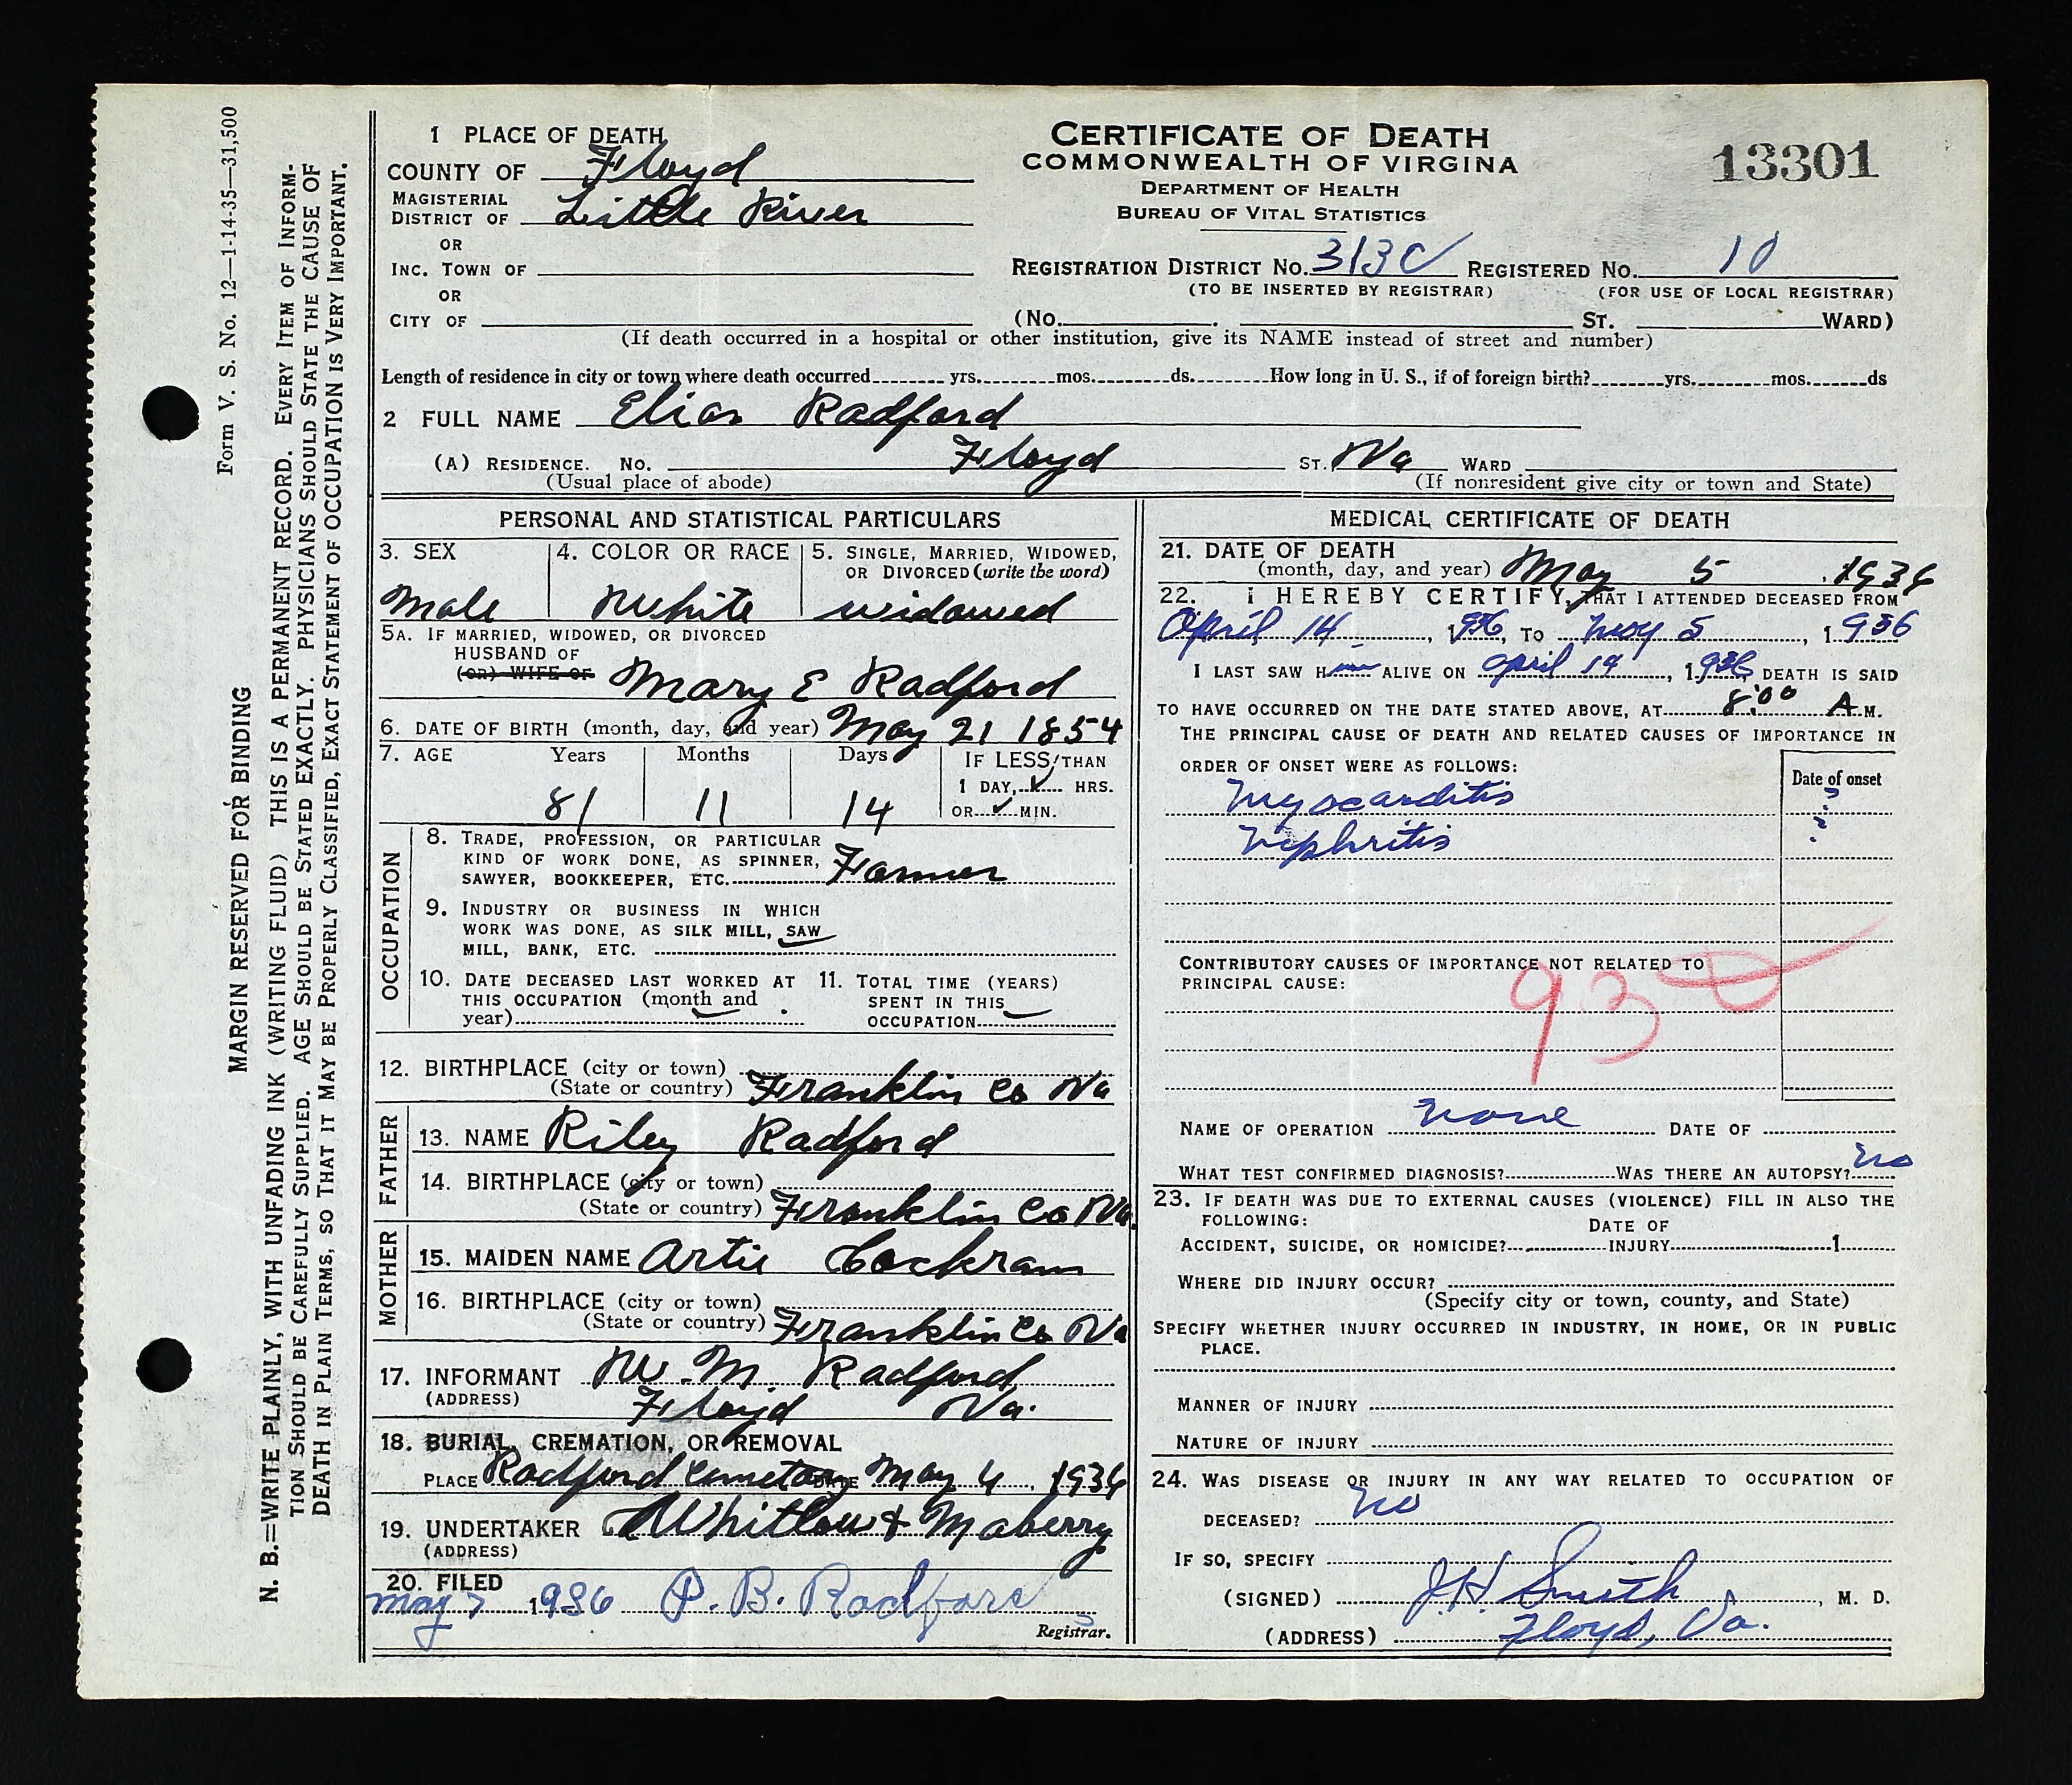 Form V. S. No. 12—1-14-35—31,500
MARGIN RESERVED FOR BINDING
N. B.=WRITE PLAINLY, WITH UNFADING INK (WRITING FLUID) THIS IS A PERMANENT RECORD. EVERY ITEM OF INFORM-
TION SHOULD BE CAREFULLY SUPPLIED. AGE SHOULD BE STATED EXACTLY. PHYSICIANS SHOULD STATE THE CAUSE OF
DEATH IN PLAIN TERMS, SO THAT IT MAY BE PROPERLY CLASSIFIED, EXACT STATEMENT OF OCCUPATION IS VERY IMPORTANT.
1 PLACE OF DEATH
COUNTY OF Floyd
MAGISTERIAL DISTRICT OF Little River
OR
INC. TOWN OF
OR
CITY OF
CERTIFICATE OF DEATH
COMMONWEALTH OF VIRGINA
DEPARTMENT OF HEALTH
BUREAU OF VITAL STATISTICS
13301
REGISTRATION DISTRICT NO. 313C REGISTERED NO. 10
(TO BE INSERTED BY REGISTRAR) (FOR USE OF LOCAL REGISTRAR)
(NO. ST. WARD)
(If death occurred in a hospital or other institution, give its NAME instead of street and number)
Length of residence in city or town where death occurred yrs. mos. ds. How long in U. S., if of foreign birth? yrs. mos. ds
2 FULL NAME Elias Radford
(A) RESIDENCE. NO. Floyd ST. Va WARD
(Usual place of abode) (If nonresident give city or town and State)
PERSONAL AND STATISTICAL PARTICULARS
3. SEX
Male
4. COLOR OR RACE
White
5. SINGLE, MARRIED, WIDOWED,
OR DIVORCED (write the word)
widowed
5A. IF MARRIED, WIDOWED, OR DIVORCED
HUSBAND OF
(OR) WIFE OF Mary E Radford
6. DATE OF BIRTH (month, day, and year) May 21 1854
7. AGE Years Months Days IF LESS THAN
1 DAY, HRS.
81 11 14 OR MIN.
OCCUPATION
8. TRADE, PROFESSION, OR PARTICULAR
KIND OF WORK DONE, AS SPINNER,
SAWYER, BOOKKEEPER, ETC. Farmer
9. INDUSTRY OR BUSINESS IN WHICH
WORK WAS DONE, AS SILK MILL, SAW
MILL, BANK, ETC.
10. DATE DECEASED LAST WORKED AT
THIS OCCUPATION (month and
year)
11. TOTAL TIME (YEARS)
SPENT IN THIS
OCCUPATION
12. BIRTHPLACE (city or town)
(State or country) Franklin Co Va
FATHER
13. NAME Riley Radford
14. BIRTHPLACE (city or town)
(State or country) Franklin Co Va.
MOTHER
15. MAIDEN NAME Artie Cockram
16. BIRTHPLACE (city or town)
(State or country) Franklin Co Va
17. INFORMANT W. M. Radford
(ADDRESS) Floyd Va.
18. BURIAL, CREMATION, OR REMOVAL
PLACE Radford Cemetary DATE May 6, 1936
19. UNDERTAKER Whitlow & Maberry
(ADDRESS)
20. FILED
May 7 1936 P. B. Radford
Registrar.
MEDICAL CERTIFICATE OF DEATH
21. DATE OF DEATH
(month, day, and year) May 5, 1936
22. I HEREBY CERTIFY, THAT I ATTENDED DECEASED FROM
April 14, 1936, TO May 5, 1936
I LAST SAW Him ALIVE ON April 14, 1936, DEATH IS SAID
TO HAVE OCCURRED ON THE DATE STATED ABOVE, AT 8:00 A.M.
THE PRINCIPAL CAUSE OF DEATH AND RELATED CAUSES OF IMPORTANCE IN
ORDER OF ONSET WERE AS FOLLOWS:
Date of onset
Myocarditis ?
Nephritis ?
CONTRIBUTORY CAUSES OF IMPORTANCE NOT RELATED TO
PRINCIPAL CAUSE:
93
NAME OF OPERATION None DATE OF
WHAT TEST CONFIRMED DIAGNOSIS? WAS THERE AN AUTOPSY? No
23. IF DEATH WAS DUE TO EXTERNAL CAUSES (VIOLENCE) FILL IN ALSO THE
FOLLOWING: DATE OF
ACCIDENT, SUICIDE, OR HOMICIDE? INJURY 1
WHERE DID INJURY OCCUR?
(Specify city or town, county, and State)
SPECIFY WHETHER INJURY OCCURRED IN INDUSTRY, IN HOME, OR IN PUBLIC
PLACE.
MANNER OF INJURY
NATURE OF INJURY
24. WAS DISEASE OR INJURY IN ANY WAY RELATED TO OCCUPATION OF
DECEASED? No
IF SO, SPECIFY
(SIGNED) J. H. Smith, M. D.
(ADDRESS) Floyd, Va.